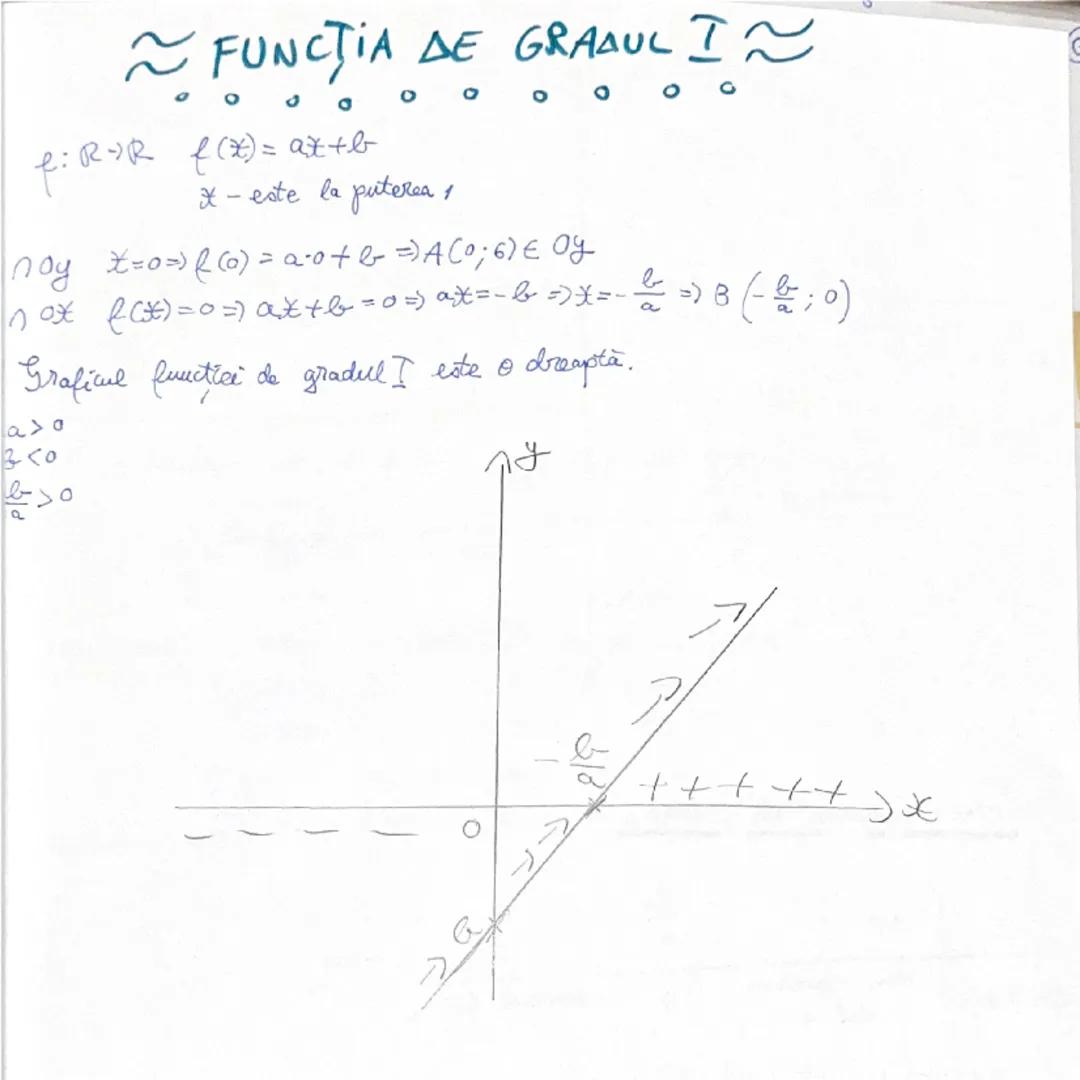 ≈ FUNCȚIA DE GRADUL I ≈
f: R→R f(x) = ax+b
x – este la puterea 1
∩ Oy x=0 => f(0) = a·0+b => A(0;b) ∈ Oy
∩ Ox f(x)=0 => ax+b=0 => ax=-b => x=-b/a => B(-b/a; 0)
Graficul funcției de gradul I este o dreaptă.
a>0
b<0
b/a>0
y
-b/a
+ + + + + x
- - - - 0
b